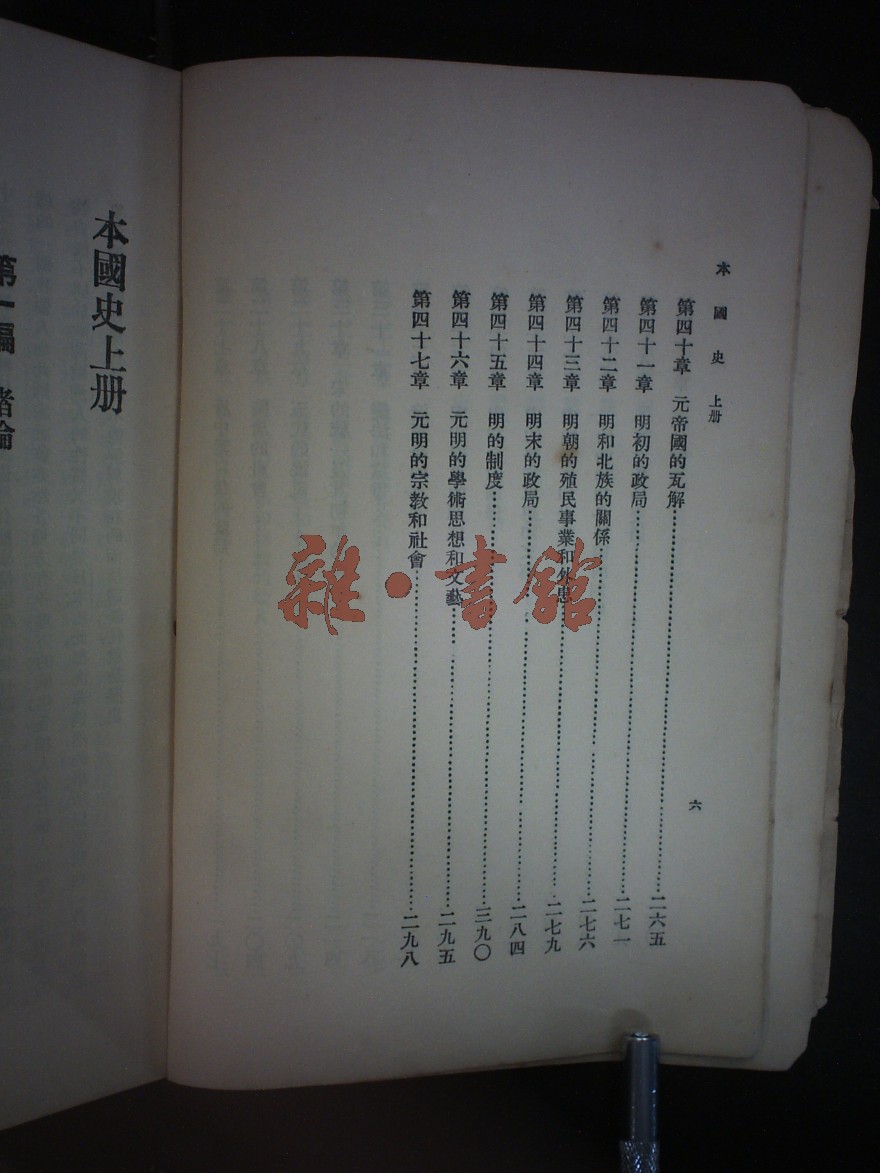 本國史 上册
六
第四十章 元帝國的瓦解……二六五
第四十一章 明初的政局……二七一
第四十二章 明和北族的關係……二七六
第四十三章 明朝的殖民事業和外患……二七九
第四十四章 明末的政局……二八四
第四十五章 明的制度……三九〇
第四十六章 元明的學術思想和文藝……二九五
第四十七章 元明的宗教和社會……二九八
本國史上册
第一編 緒論
雜·書館